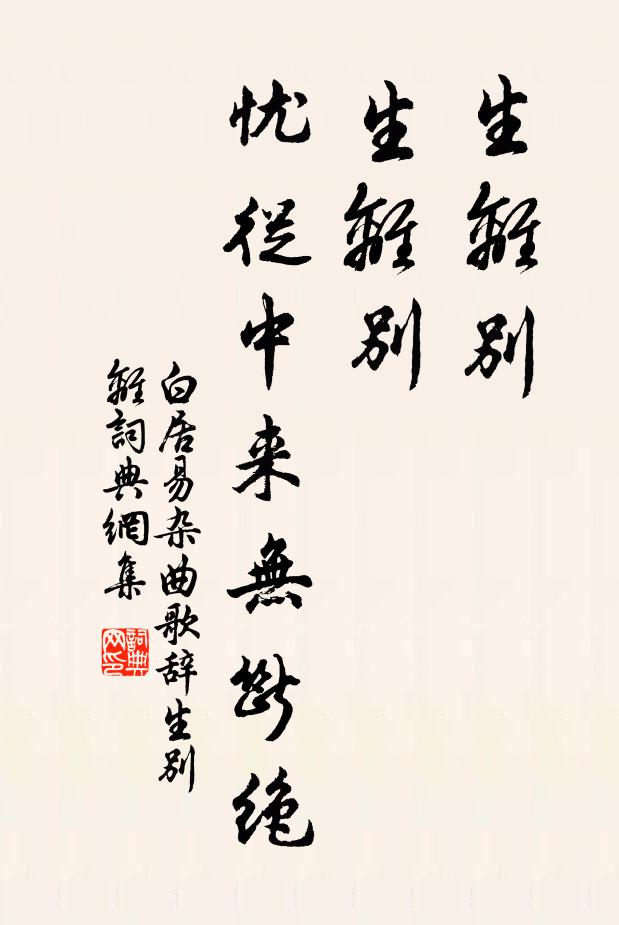 生離别
生離别
忧從中来無斷绝
白居易杂曲歌辞生别
離詞典網集
詞典
网印